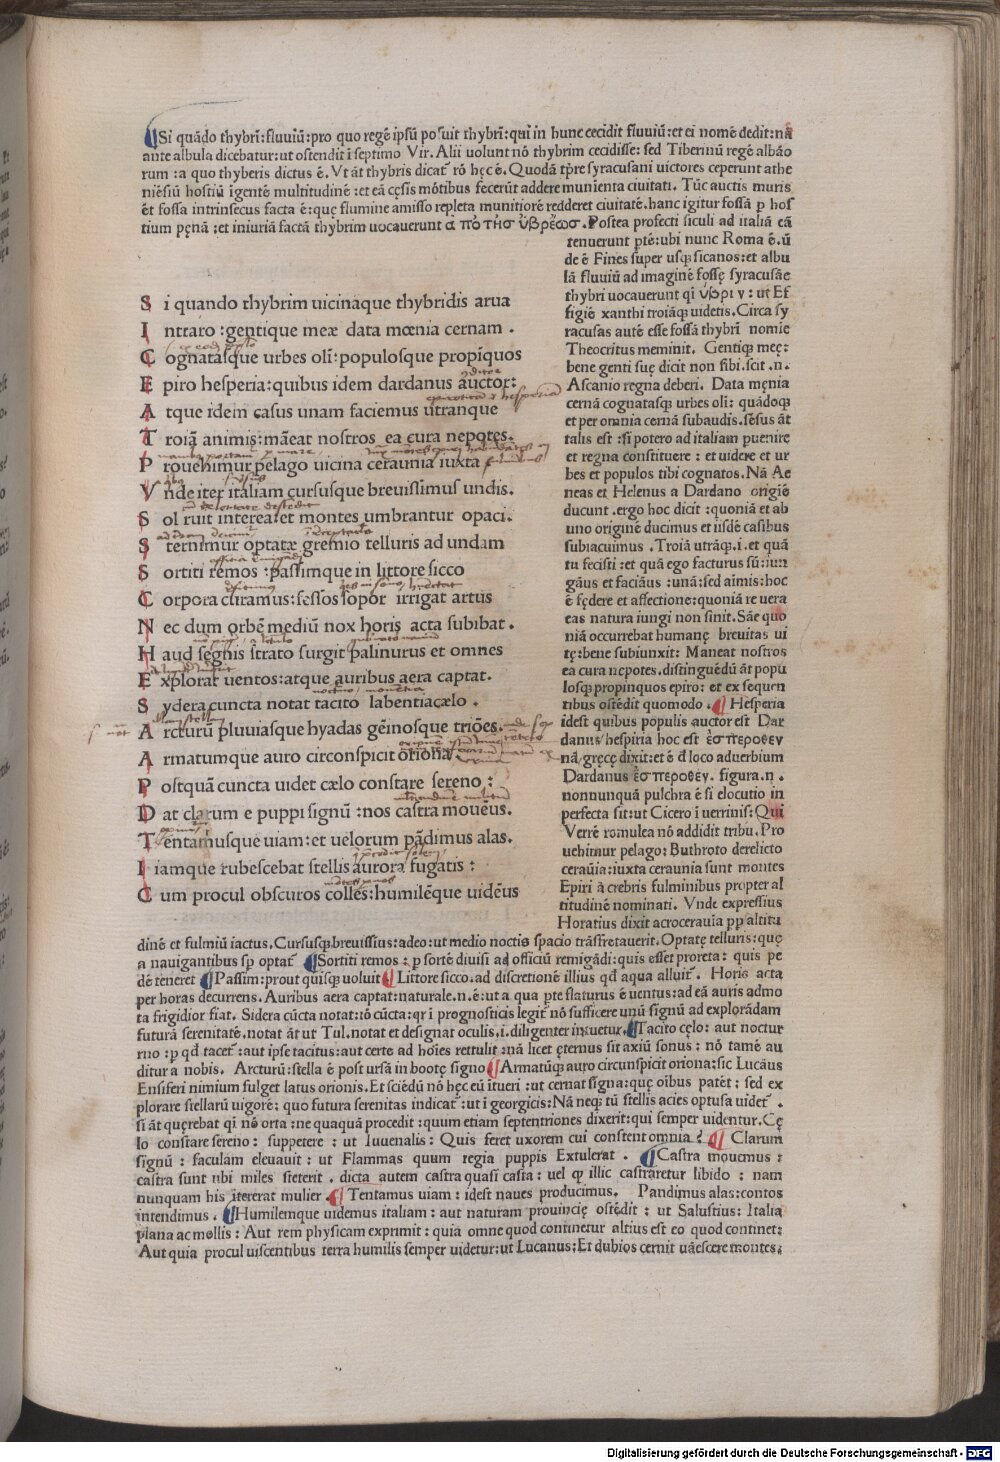 Si quādo thybrī: fluuiū: pro quo regē ipsū posuit thybrī: qui in hunc cecidit fluuiū: et ei nomē dedit: nā
ante albula dicebatur: ut ostendit ī septimo Vir. Alii uolunt nō thybrim cecidisse: sed Tiberinū regē albāo
rum: a quo thyberis dictus ē. Vt āt thybris dicat rō hęc ē. Quodā tpre syracusani uictores ceperunt athe
niēsiū hostiū īgentē multitudinē: et eā cęsis mōtibus fecerūt addere munimenta ciuitati. Tūc auctis muris
ēt fossa intrinsecus facta ē: quę flumine amisso repleta munitiorē redderet ciuitatē. hanc igitur fossā p hos
tium pęnā: et iniuriā factā thybrim uocauerunt ἀ πὸ τῆσ ὕβρέωσ. Postea profecti siculi ad italiā eā
tenuerunt ptē: ubi nunc Roma ē. ū
de ē Fines super usqꝫ sicanos: et albu
lā fluuiū ad imaginē fossę syracusāe
thybrī uocauerunt qī ὕβρι ν: ut Ef
figiē xanthi troiāqꝫ uidetis. Circa sy
racusas autē esse fossā thybrī nomie
Theocritus meminit. Gentiqꝫ meę:
bene genti suę dicit non sibi. scit .n.
Ascanio regna deberi. Data męnia
cernā cognatasqꝫ urbes olī: quādoqꝫ
et per omnia cernā subaudis. sēsus āt
talis est: si potero ad italiam puenire
et regna constituere: et uidere et ur
bes et populos tibi cognatos. Nā Ae
neas et Helenus a Dardano origiē
ducunt. ergo hoc dicit: quoniā et ab
uno originē ducimus et iisdē casibus
subiacuimus. Troiā utrāqꝫ. i. et quā
tu fecisti: et quā ego facturus sū: iun
gāus et faciāus: unā: sed aimis: hoc
ē fędere et affectione: quoniā re uera
eas natura iungi non sinit. Sāe quo
niā occurrebat humanę breuitas ui
tę: bene subiunxit: Maneat nostros
ea cura nepotes. distinguēdū āt popu
losqꝫ propinquos epiro: et ex sequen
tibus ostēdit quomodo. Hesperia
idest quibus populis auctor est Dar
danus hespiria hoc est ἑσπεροθεν
nā gręcę dixit: et ē d loco aduerbium
Dardanus ἑσπεροθεν. figura .n.
nonnunquā pulchra ē si elocutio in
perfecta sit: ut Cicero ī uerrinis: Qui
Verrē romulea nō addidit tribu. Pro
uehimur pelago: Buthroto derelicto
ceraūia: iuxta ceraunia sunt montes
Epiri ā crebris fulminibus propter al
titudinē nominati. Vnde expressius
Horatius dixit acroceraūia pp altitu
S i quando thybrim uicinaque thybridis arua
I ntraro: gentique meæ data mœnia cernam.
C ognatasque urbes olī: populosque propīquos
E piro hesperia: quibus idem dardanus auctor:
A tque idem casus unam faciemus utranque
T roiā animis: māeat nostros ea cura nepotes.
P rouehimur pelago uicina ceraunia iuxta
V nde iter italiam cursusque breuissimus undis.
S ol ruit interea: et montes umbrantur opaci.
S ternimur optatæ gremio telluris ad undam
S ortiti remos: passimque in littore sicco
C orpora curamus: fessos sopor irrigat artus
N ec dum orbē mediū nox horis acta subibat.
H aud segnis strato surgit palinurus et omnes
E xplorat uentos: atque auribus aera captat.
S ydera cuncta notat tacito labentia cælo.
A rcturū pluuiasque hyadas gēinosque triōes.
A rmatumque auro circonspicit oriona
P ostquā cuncta uidet cælo constare sereno:
D at clarum e puppi signū: nos castra mouēus.
T entamusque uiam: et uelorum pādimus alas.
I iamque rubescebat stellis aurora fugatis:
C um procul obscuros colles: humilēque uidēus
dinē et fulmiū iactus. Cursusqꝫ breuissius: adeo: ut medio noctis spacio trāsfretauerit. Optatę telluris: quę
a nauigantibus sp optat. Sortiti remos: p sortē diuisi ad officiū remigādi: quis esset proreta: quis pe
dē teneret Passim: prout quisqꝫ uoluit Littore sicco. ad discretionē illius qd aqua alluit. Horis acta
per horas decurrens. Auribus aera captat: naturale .n. ē: ut a qua pte flaturus ē uentus: ad eā auris admo
ta frigidior fiat. Sidera cūcta notat: iō cūcta: qr i prognosticis legit nō sufficere unū signū ad explorādam
futurā serenitatē. notat āt ut Tul. notat et designat oculis. i. diligenter ītuetur. Tacito cęlo: aut noctur
rno: p qd tacet: aut ipse tacitus: aut certe ad hoīes rettulit: nā licet ęternus sit axiū sonus: nō tamē au
ditur a nobis. Arcturū: stella ē post ursā in bootę signo Armatūqꝫ auro circunspicit oriona: sic Lucāus
Ensiferi nimium fulget latus orionis. Et sciēdū nō hęc eū ītueri: ut cernat signa: quę oībus patēt: sed ex
plorare stellarū uigorē: quo futura serenitas indicat: ut i georgicis: Nā neqꝫ tū stellis acies optusa uidet.
si āt quęrebat qī nō orta: ne quaquā procedit: quum etiam septentriones dixerit: qui semper uidentur. Cę
lo constare sereno: suppetere: ut Iuuenalis: Quis feret uxorem cui constent omnia? Clarum
signū: faculam eleuauit: ut Flammas quum regia puppis Extulerat. Castra mouemus:
castra sunt ubi miles steterit. dicta autem castra quasi casta: uel qp illic castraretur libido: nam
nunquam his itererat mulier. Tentamus uiam: idest naues producimus. Pandimus alas: contos
intendimus. Humilemque uidemus italiam: aut naturam prouincię ostēdit: ut Salustius: Italia
plana ac mollis: Aut rem physicam exprimit: quia omne quod continetur altius est eo quod continet:
Aut quia procul uiscentibus terra humilis semper uidetur: ut Lucanus: Et dubios cernit uāescere montes.
Digitalisierung gefördert durch die Deutsche Forschungsgemeinschaft - DFG